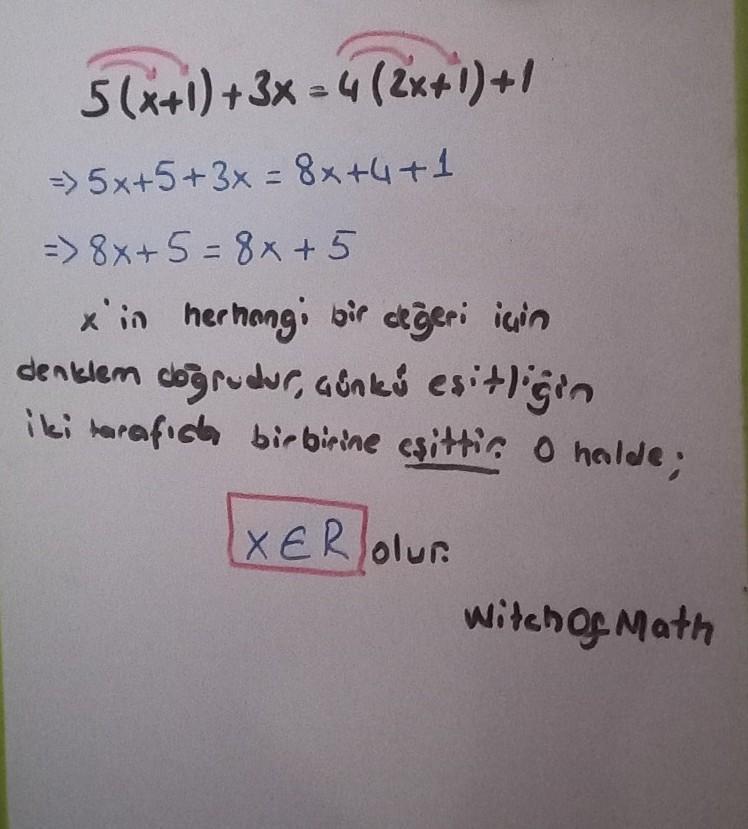 5(x+1)+3x=4(2x+1)+1
=> 5x+5+3x = 8x+4+1
=> 8x+5 = 8x+5
x'in herhangi bir değeri için
denklem doğrudur, çünkü eşitliğin
iki tarafıda birbirine eşittir. O halde;
x∈R olur.
WitchOfMath